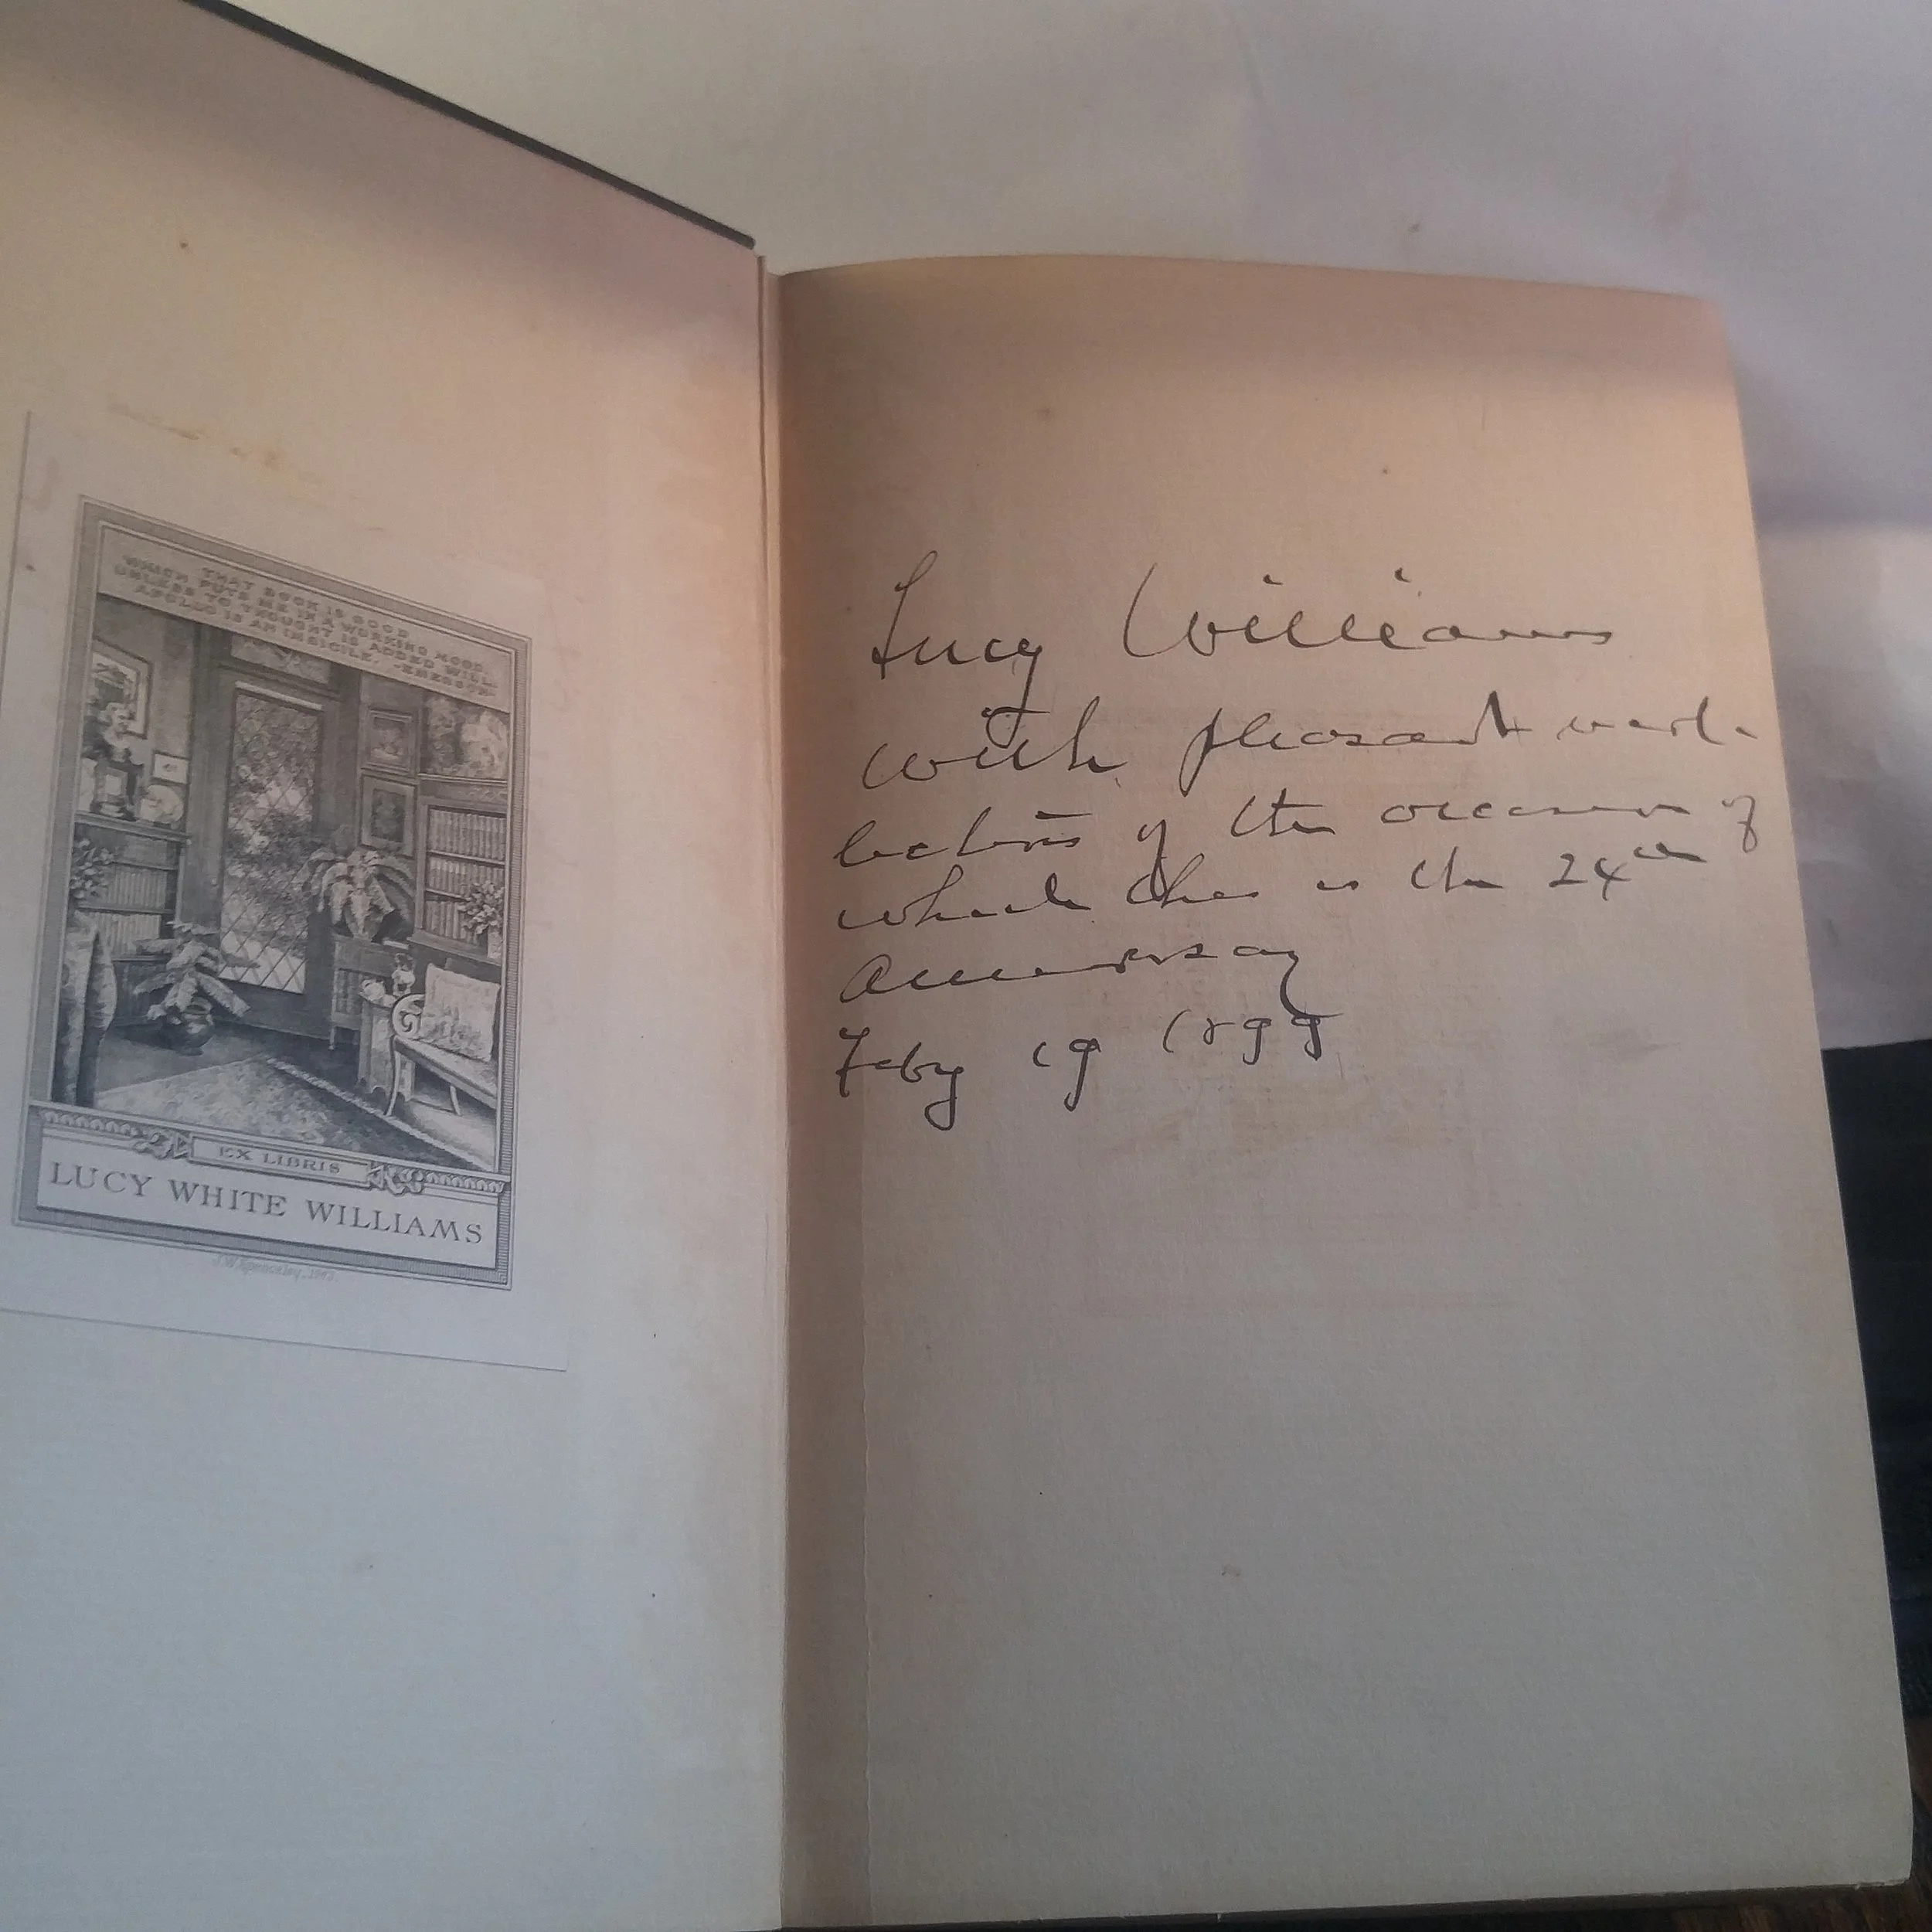 THAT BOOK IS GOOD
WHICH PUTS ME IN A WORKING MOOD.
UNLESS TO THOUGHT IS ADDED WILL
APOLLO IS AN IMBECILE. -EMERSON-
EX LIBRIS
LUCY WHITE WILLIAMS
J.W. Spenceley,
Lucy Williams
with pleasant
of the occasion of
which this is the 24th
anniversary
Feby 19 1899